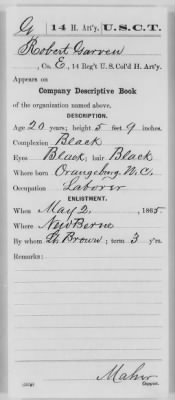 G | 14 H. Art'y. | U.S.C.T.
Robert Garven
, Co. E, 14 Reg't U. S. Col'd H. Art'y.
Appears on
Company Descriptive Book
of the organization named above.
DESCRIPTION.
Age 20 years; height 5 feet 9 inches.
Complexion Black
Eyes Black; hair Black
Where born Orangeburg, N.C.
Occupation Laborer
ENLISTMENT.
When May 2, 1865.
Where New Berne
By whom Lt. Brown; term 3 y'rs.
Remarks:
Maher
Copyist.